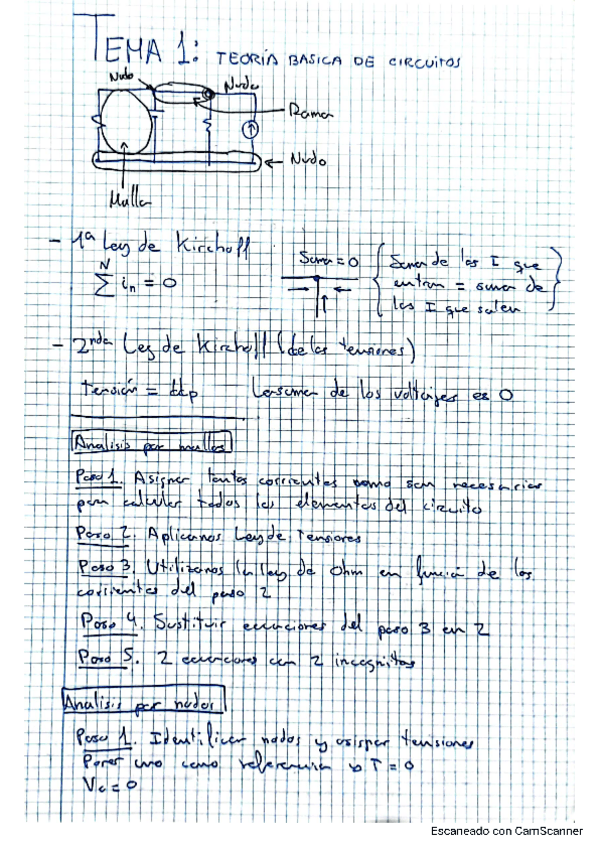 TEMA 1: TEORÍA BASICA DE CIRCUITOS
Nudo
Nudo
Rama
Nudo
Malla
- 1ª Ley de Kirchoff
N
∑ in = 0
Suma = 0
{ Suma de las I que
entran = suma de
las I que salen }
- 2nda Ley de Kirchoff (de las tensiones)
tensión = ddp La suma de los voltajes es 0
Analisis por mallas
Paso 1. Asignar tantas corrientes como sean necesarias
para calcular todos los elementos del circuito
Paso 2. Aplicamos Ley de Tensiones
Paso 3. Utilizamos la ley de Ohm en función de las
corrientes del paso 2
Paso 4. Sustituir ecuaciones del paso 3 en 2
Paso 5. 2 ecuaciones con 2 incognitas
Analisis por nudos
Paso 1. Identificar nodos y asignar tensiones
Poner uno como referencia T = 0
Vc = 0
Escaneado con CamScanner